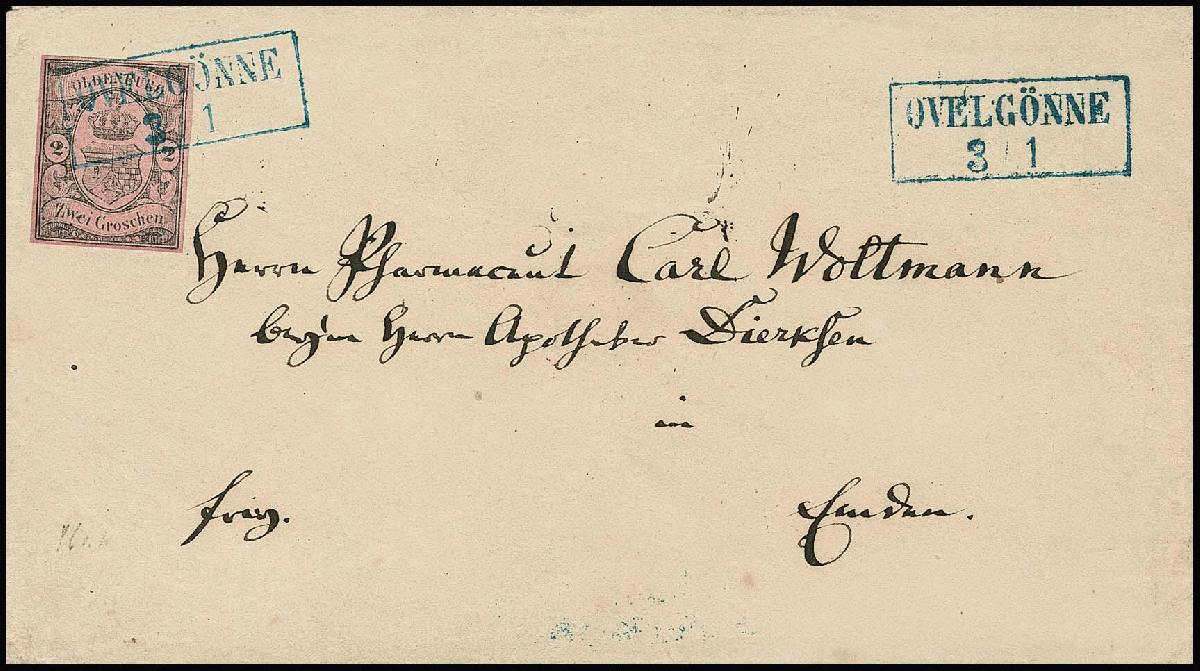 OLDENBURG
2 2
Zwei Groschen
OVELGÖNNE
3 1
OVELGÖNNE
3 1
Herrn Pharmaceut Carl Woltmann
beym Herrn Apotheker Dierksen
in
frey.
Emden.